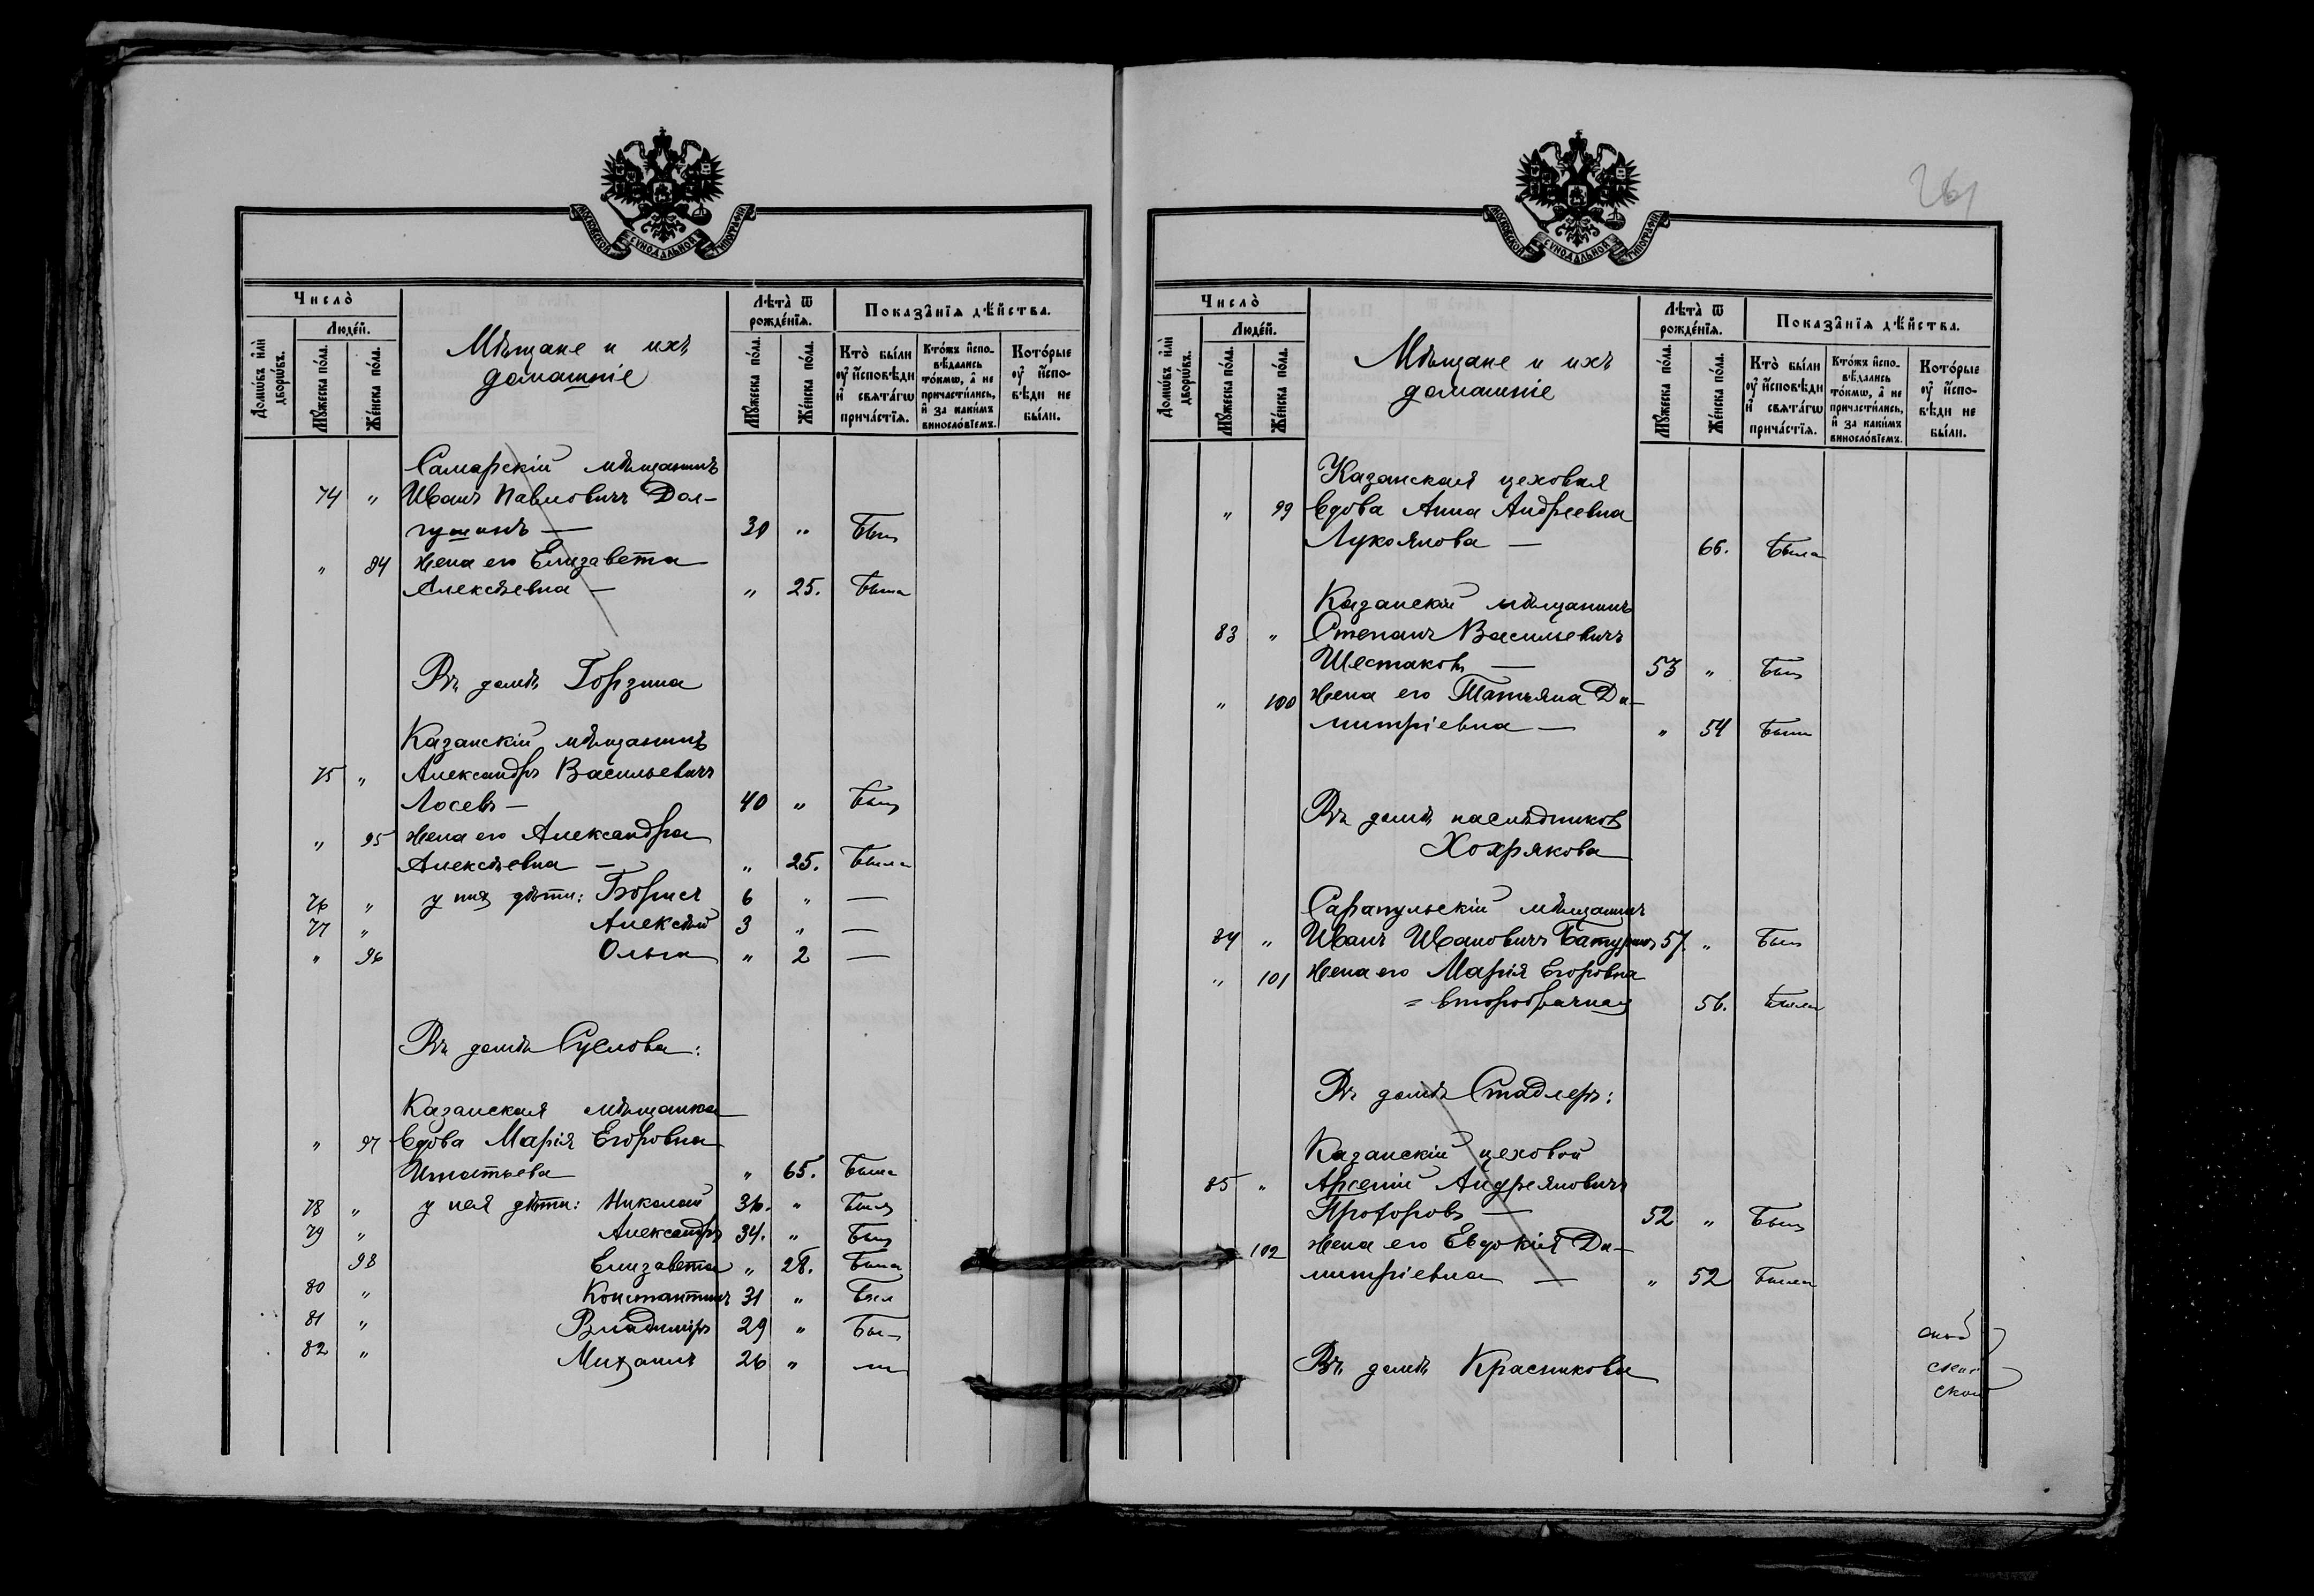 МОСКОВСКОЙ СѴНОДАЛЬНОЙ ТИПОГРАФІИ
Число̀
Домѡ́въ и҆лѝ дворѡ́въ.
Люде́й.
Мꙋ́жеска по́ла.
Же́нска по́ла.
Мѣщане и ихъ
домашніе
Лѣта̀ ѿ
рожде́нїѧ.
Мꙋ́жеска по́ла.
Же́нска по́ла.
Показа̑нїѧ дѣ́йства.
Кто̀ бы́ли
ᲂу҆ и҆сповѣ́ди
и҆ свѧта́гѡ
прича́стїѧ.
Кто́жъ и҆спо-
вѣ́дались
то́кмѡ, а҆ не
причасти́лись,
и҆ за каки́мъ
винослов́їемъ.
Кото́рые
ᲂу҆ и҆спо-
вѣ́ди не
бы́ли.
Самарскій мѣщанинъ
74 „ Иванъ Павловичъ Дол-
гушинъ — 30 „ Былъ
„ 94 Жена его Елизавета
Алексѣевна — „ 25. Была
Въ домѣ Горзина
Казанскій мѣщанинъ
75 „ Александръ Васильевичъ
Лосевъ — 40 „ Былъ
„ 95 Жена его Александра
Алексѣевна — „ 25. Была
76 „ у нихъ дѣти: Борисъ 6 „ —
77 „ Алексѣй 3 „ —
„ 96 Ольга „ 2 —
Въ домѣ Суслова:
Казанская мѣщанка
„ 97 Вдова Марія Егоровна
Игнатьева „ 65. Была
78 „ у нея дѣти: Николай 36. „ Былъ
79 „ Александръ 34. „ Былъ
98 Елизавета „ 28. Была
80 „ Константинъ 31 „ Был
81 „ Владиміръ 29 „ Был
82 „ Михаилъ 26 „
261
МОСКОВСКОЙ СѴНОДАЛЬНОЙ ТИПОГРАФІИ
Число̀
Домѡ́въ и҆лѝ дворѡ́въ.
Люде́й.
Мꙋ́жеска по́ла.
Же́нска по́ла.
Мѣщане и ихъ
домашніе
Лѣта̀ ѿ
рожде́нїѧ.
Мꙋ́жеска по́ла.
Же́нска по́ла.
Показа̑нїѧ дѣ́йства.
Кто̀ бы́ли
ᲂу҆ и҆сповѣ́ди
и҆ свѧта́гѡ
прича́стїѧ.
Кто́жъ и҆спо-
вѣ́дались
то́кмѡ, а҆ не
причасти́лись,
и҆ за каки́мъ
винослов́їемъ.
Кото́рые
ᲂу҆ и҆спо-
вѣ́ди не
бы́ли.
Казанская цеховая
„ 99 Вдова Анна Андреевна
Лукоянова — 66. Была
Казанскій мѣщанинъ
83 „ Степанъ Васильевичъ
Шестаковъ — 53 „ Былъ
„ 100 Жена его Татьяна Ди-
митріевна — „ 54 Была
Въ домѣ наслѣдниковъ
Хохрякова
Сарапульскій мѣщанинъ
84 „ Иванъ Ивановичъ Батуринъ 57. „ Былъ
„ 101 Жена его Марія Егоровна
= второбрачная 56. Была
Въ домѣ Стадлеръ:
Казанскій цеховой
85 „ Арсеній Андреяновичъ
Прохоровъ — 52 „ Былъ
102 Жена его Евдокія Ди-
митріевна — „ 52 Была
Въ домѣ Красникова